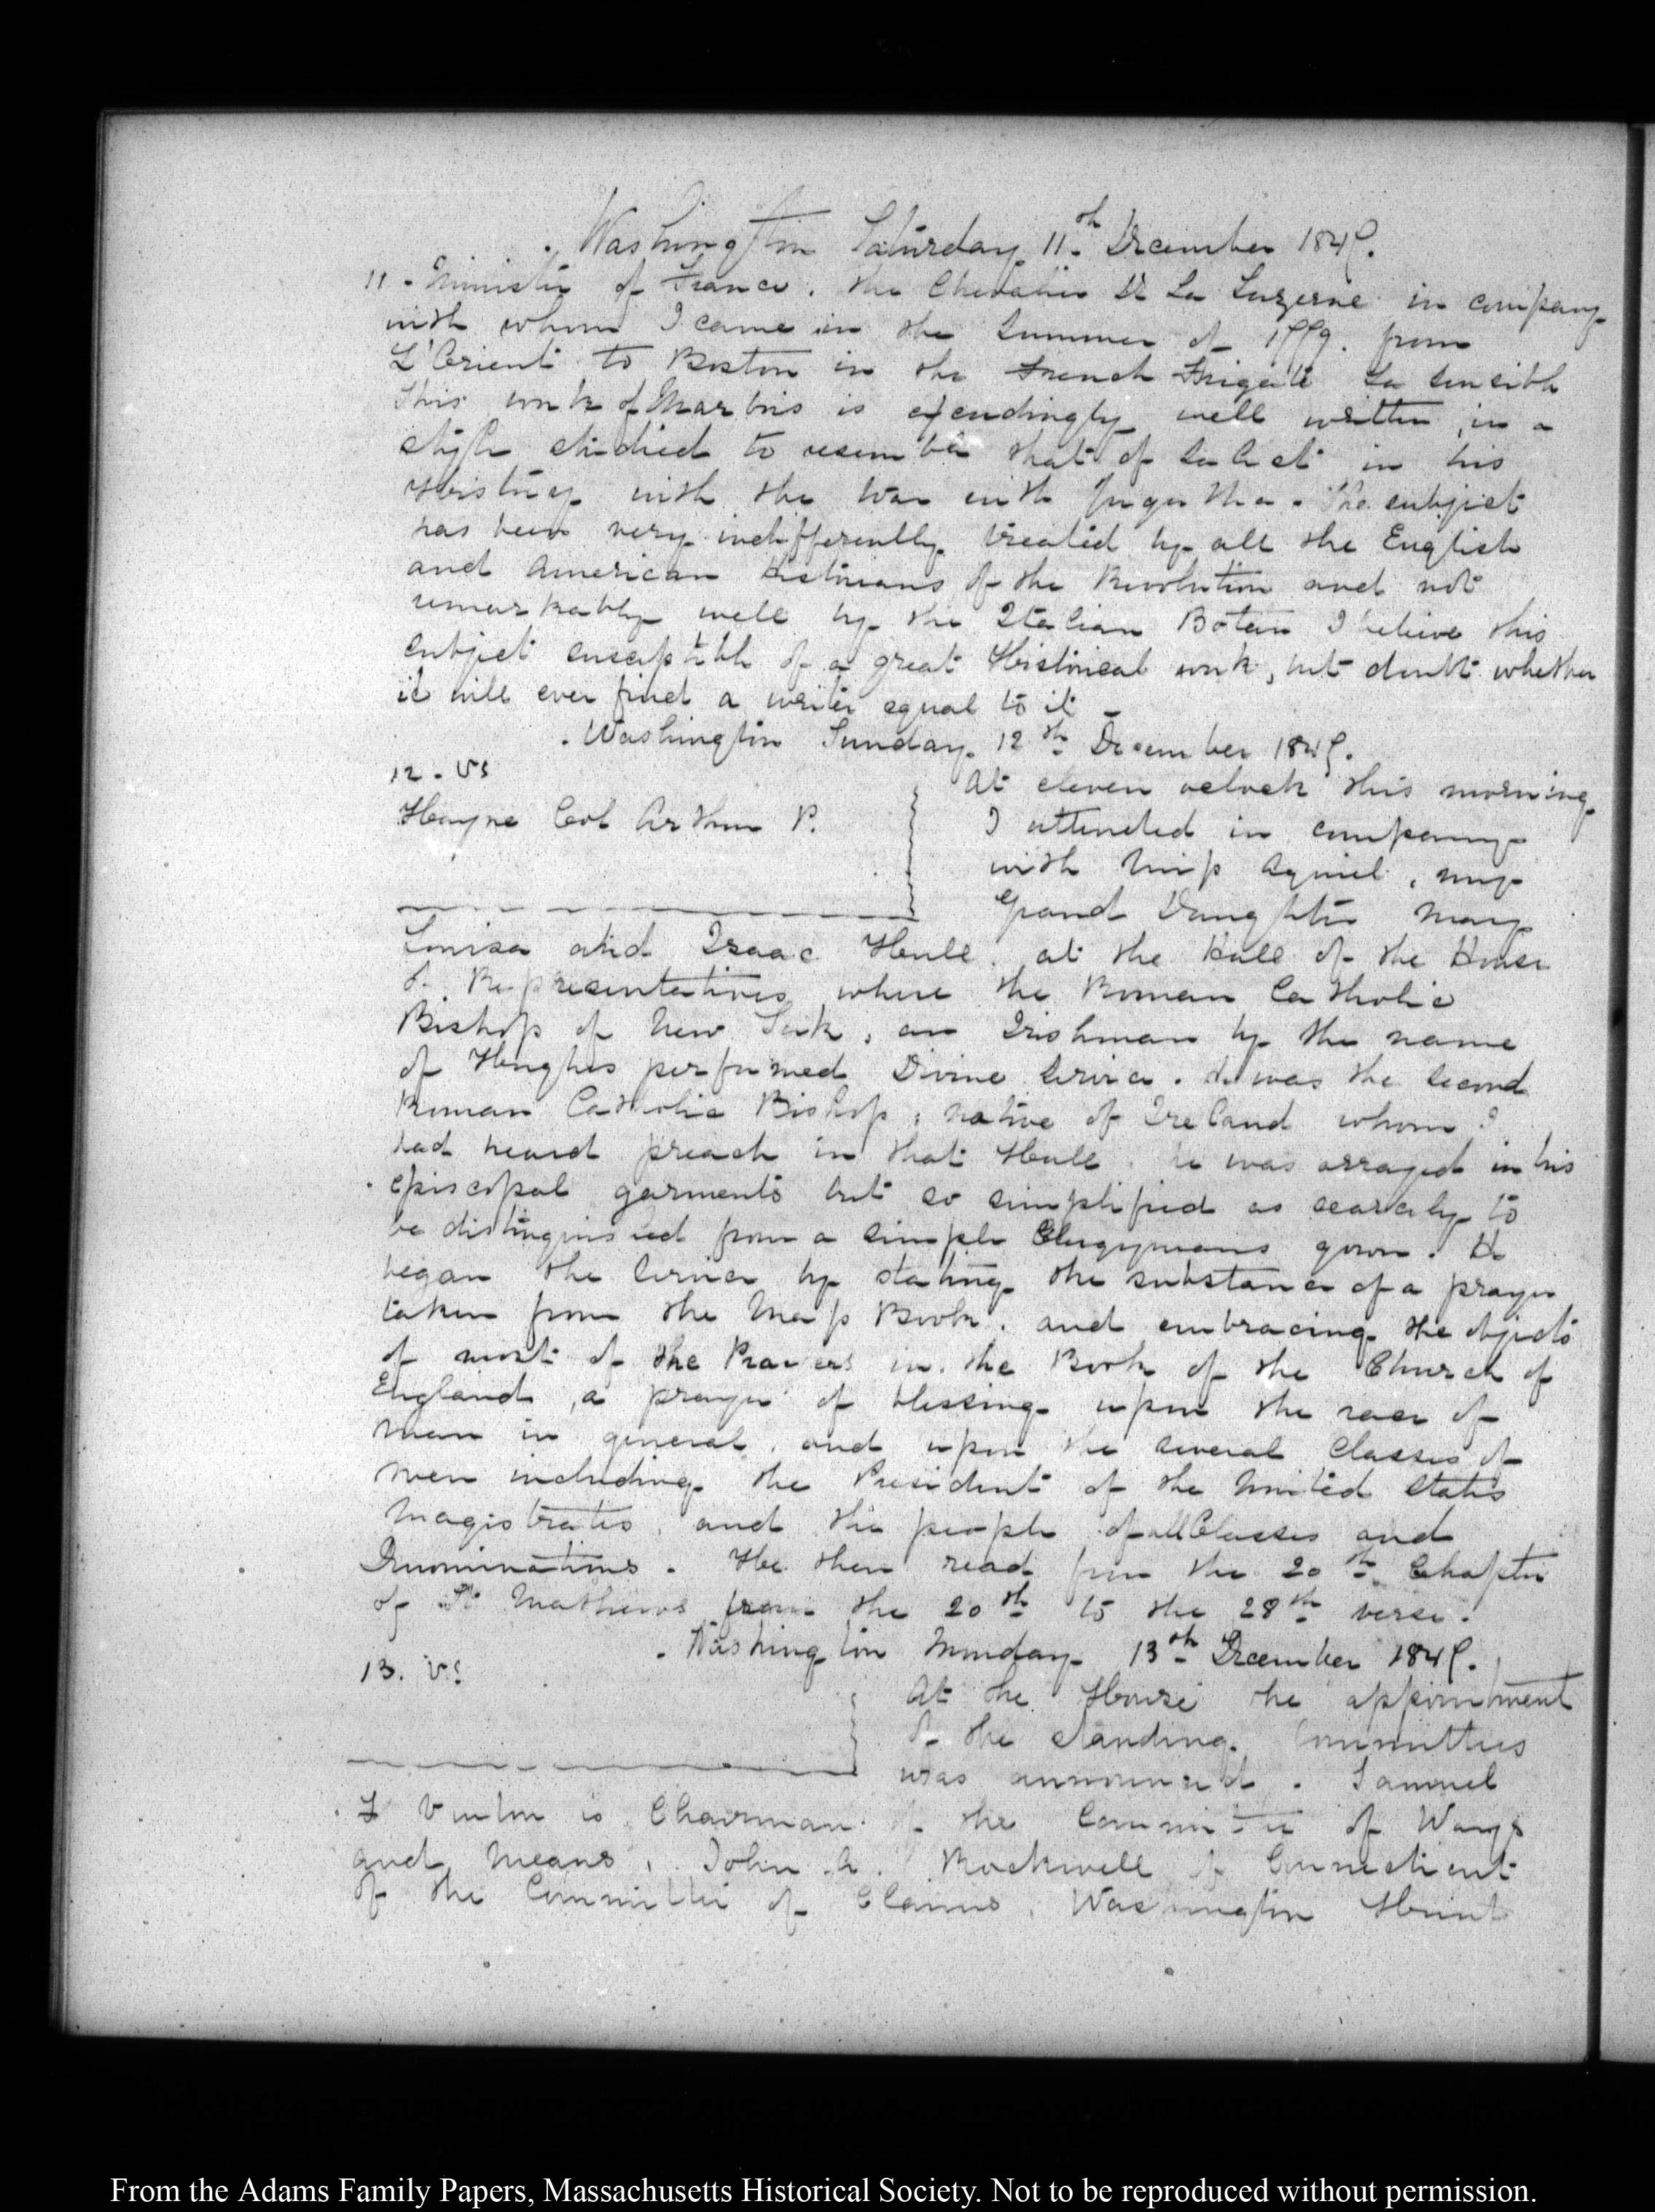 Washington Saturday 11.th December 1847.
11 - Minister of France. the Chevalier De La Luzerne in company
with whom I came in the Summer of 1779. from
L'Orient to Boston in the French Frigate La Sensible
This work of Marbois is exceedingly well written, in a
style studied to resemble that of Salust in his
History with the War with Jugurtha. The subject
has been very indifferently treated by all the English
and American Historians of the Revolution and not
remarkably well by the Italian Bota I believe this
subject susceptible of a great Historical work, but doubt whether
it will ever find a writer equal to it -
Washington Sunday. 12th December 1847.
12. VS
Hayne Col Arthur P.
At eleven oclock this morning
I attended in company
with Miss , my
Grand Daughter Mary
Louisa and Isaac Hull. at the Hall of the House
of Representatives, where the Roman Catholic
Bishop of New York, an Irishman by the name
of Hughes performed Divine Service. he was the Second
Roman Catholic Bishop, native of Ireland whom I
had heard preach in that Hall. he was arrayed in his
episcopal garments but so simplified as scarcely to
be distinguished from a simple Clergymans gown. He
began the Service by stating the substance of a prayer
taken from the Mass Book. and embracing the objects
of most of the Prayers in the Book of the Church of
England, a prayer of blessing upon the race of
man in general. and upon the several Classes of
men including the President of the United States
Magistrates, and the people of all Classes and
Denominations. He then read from the 20th Chapter
of St Mathews from the 20th to the 28th verse.
Washington Monday 13th December 1847.
13. VS
At the House the appointment
of the standing Committees
was announced. Samuel
F Vinton is Chairman of the Committee of Ways
and Means, John A. Rockwell of Connecticut
of the Committee of Claims, Washington Hunt
From the Adams Family Papers, Massachusetts Historical Society. Not to be reproduced without permission.